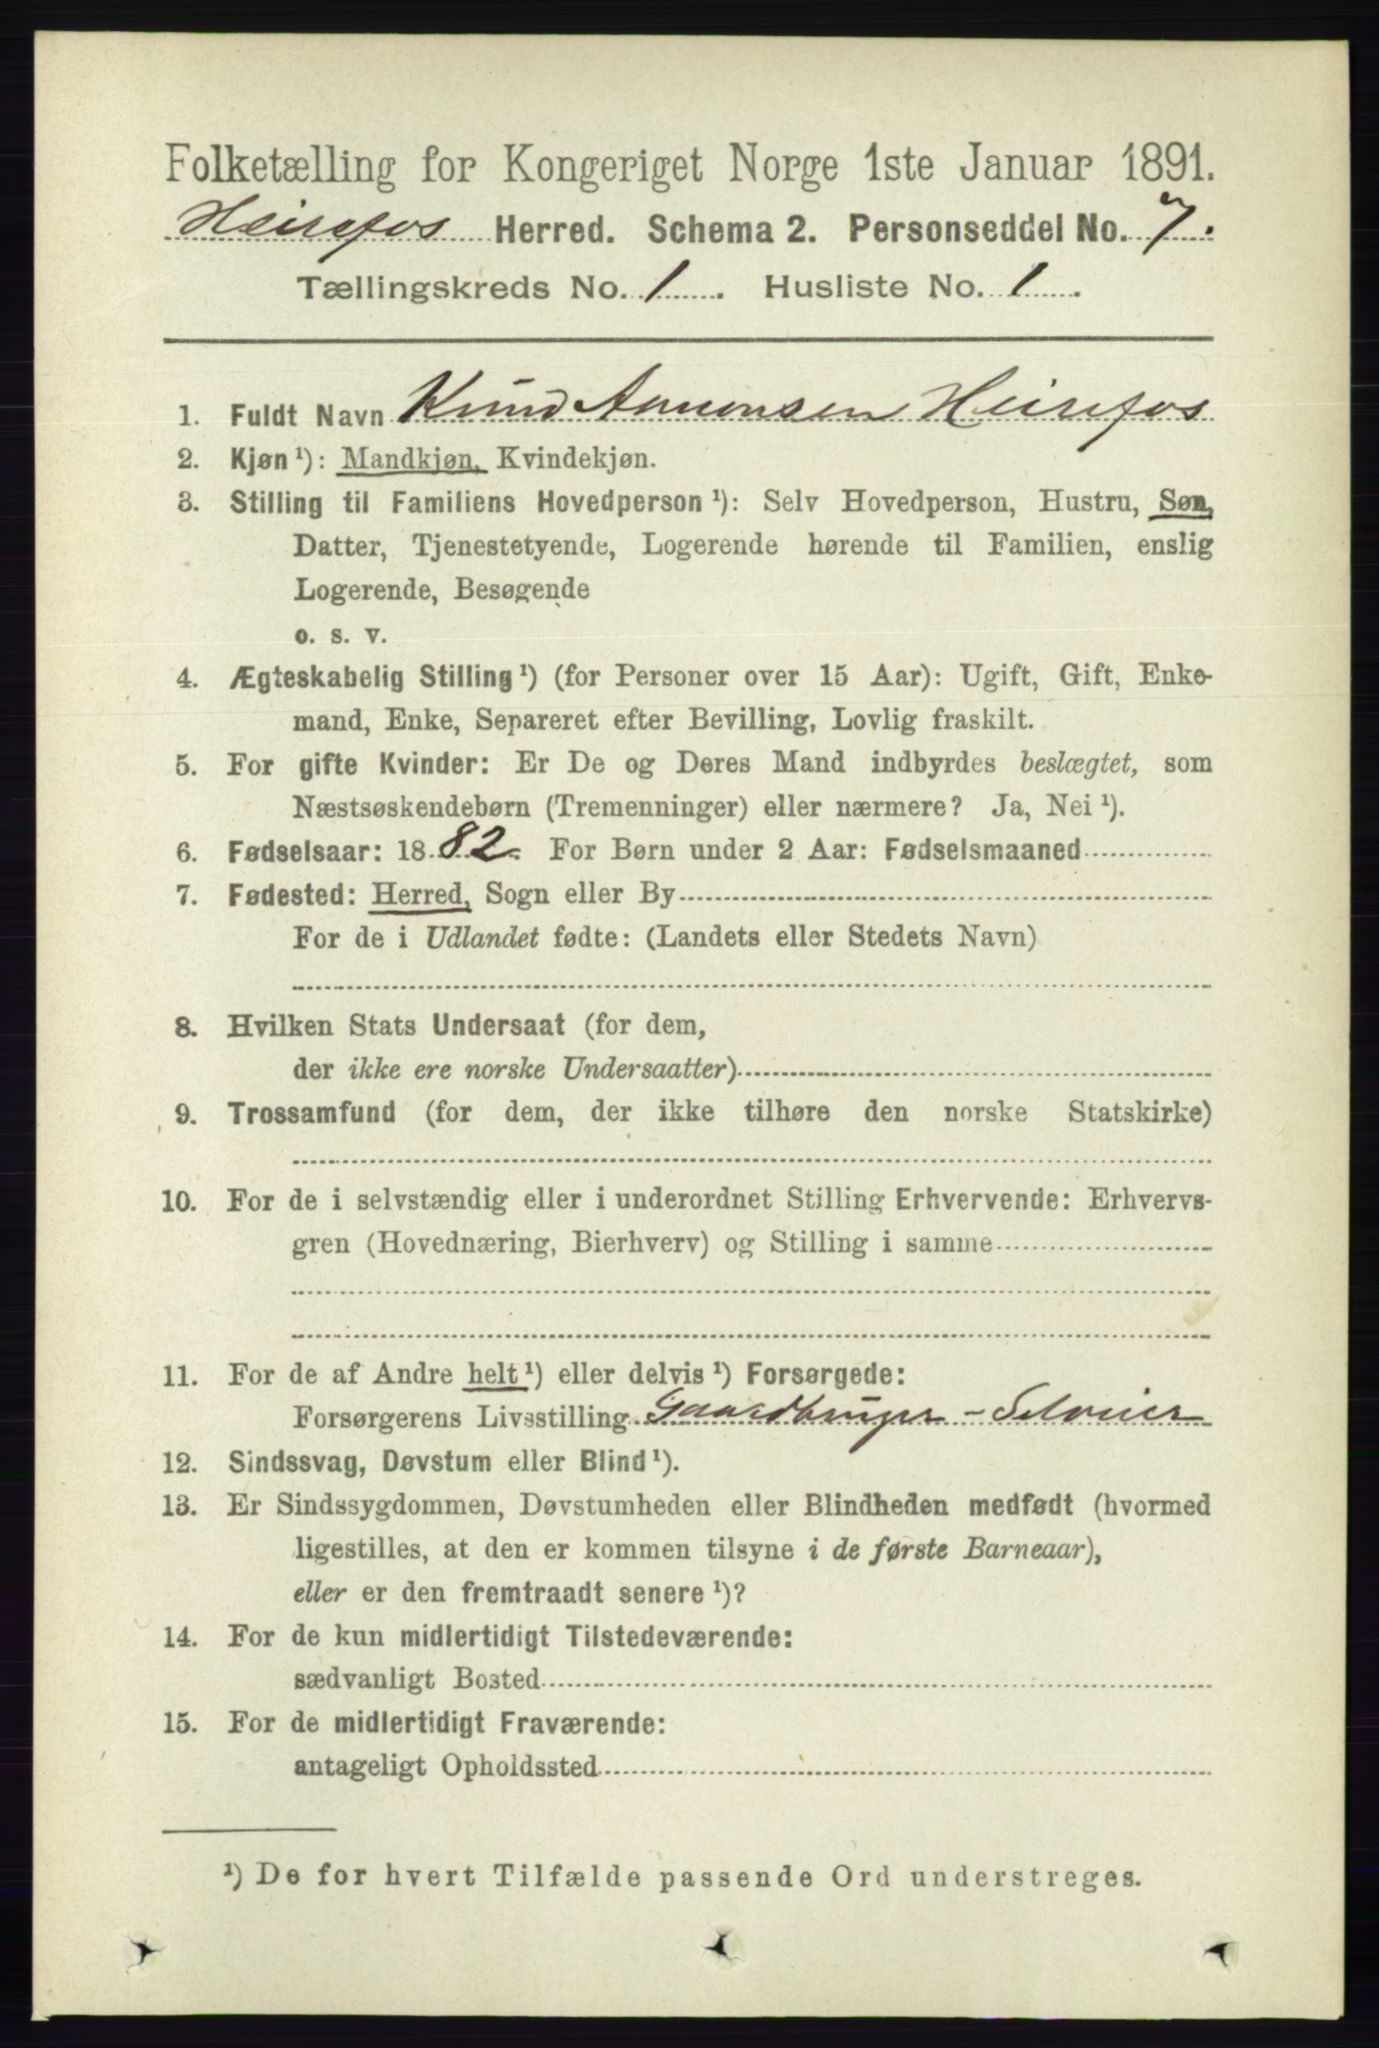 Folketælling for Kongeriget Norge 1ste Januar 1891.
Heirefos Herred. Schema 2. Personseddel No. 7.
Tællingskreds No. 1. Husliste No. 1.
1. Fuldt Navn Knud Aanonsen Heirefos
2. Kjøn ¹): Mandkjøn, Kvindekjøn.
3. Stilling til Familiens Hovedperson ¹): Selv Hovedperson, Hustru, Søn,
Datter, Tjenestetyende, Logerende hørende til Familien, enslig
Logerende, Besøgende
o. s. v.
4. Ægteskabelig Stilling ¹) (for Personer over 15 Aar): Ugift, Gift, Enke-
mand, Enke, Separeret efter Bevilling, Lovlig fraskilt.
5. For gifte Kvinder: Er De og Deres Mand indbyrdes beslægtet, som
Næstsøskendebørn (Tremenninger) eller nærmere? Ja, Nei ¹).
6. Fødselsaar: 1882. For Børn under 2 Aar: Fødselsmaaned
7. Fødested: Herred, Sogn eller By
For de i Udlandet fødte: (Landets eller Stedets Navn)
8. Hvilken Stats Undersaat (for dem,
der ikke ere norske Undersaatter)
9. Trossamfund (for dem, der ikke tilhøre den norske Statskirke)
10. For de i selvstændig eller i underordnet Stilling Erhvervende: Erhvervs-
gren (Hovednæring, Bierhverv) og Stilling i samme
11. For de af Andre helt ¹) eller delvis ¹) Forsørgede:
Forsørgerens Livsstilling Gaardbruger - Selveier
12. Sindssvag, Døvstum eller Blind ¹).
13. Er Sindssygdommen, Døvstumheden eller Blindheden medfødt (hvormed
ligestilles, at den er kommen tilsyne i de første Barneaar),
eller er den fremtraadt senere ¹)?
14. For de kun midlertidigt Tilstedeværende:
sædvanligt Bosted
15. For de midlertidigt Fraværende:
antageligt Opholdssted
¹) De for hvert Tilfælde passende Ord understreges.